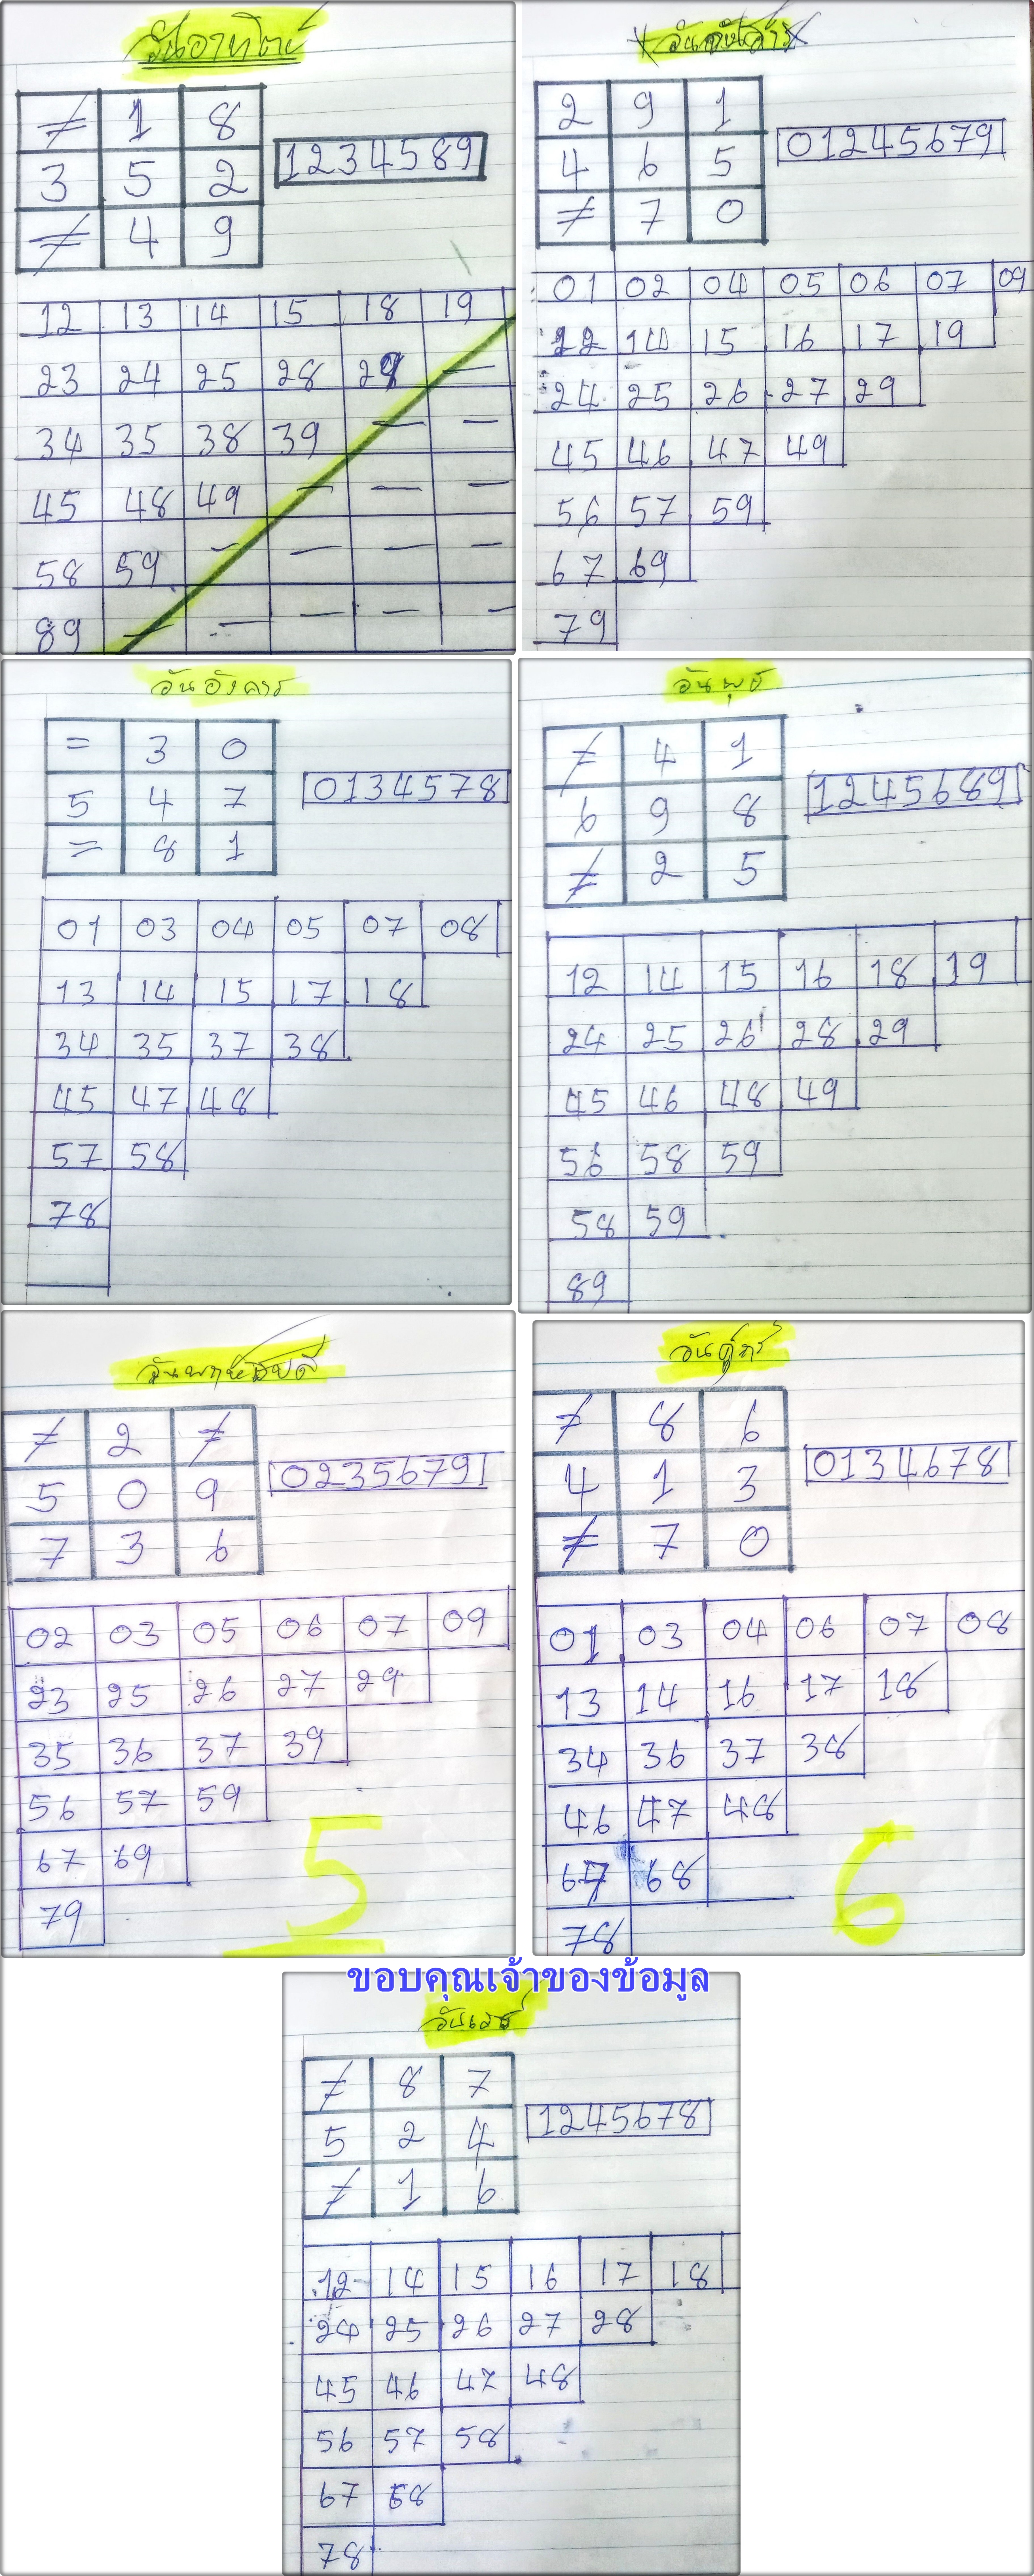 วันอาทิตย์
≠ 1 8
3 5 2
≠ 4 9
1234589
12 13 14 15 18 19
23 24 25 28 29 —
34 35 38 39 — —
45 48 49 — — —
58 59 — — — —
89 — — — — —
วันจันทร์
2 9 1
4 6 5
≠ 7 0
01245679
01 02 04 05 06 07 09
12 14 15 16 17 19
24 25 26 27 29
45 46 47 49
56 57 59
67 69
79
วันอังคาร
= 3 0
5 4 7
= 8 1
0134578
01 03 04 05 07 08
13 14 15 17 18
34 35 37 38
45 47 48
57 58
78
วันพุธ
≠ 4 1
6 9 8
≠ 2 5
1245689
12 14 15 16 18 19
24 25 26 28 29
45 46 48 49
56 58 59
58 59
89
วันพฤหัสบดี
≠ 2 ≠
5 0 9
7 3 6
0235679
02 03 05 06 07 09
23 25 26 27 29
35 36 37 39
56 57 59
67 69
79
5
วันศุกร์
≠ 8 6
4 1 3
≠ 7 0
0134678
01 03 04 06 07 08
13 14 16 17 18
34 36 37 38
46 47 48
67 68
78
6
ขอบคุณเจ้าของข้อมูล
วันเสาร์
≠ 8 7
5 2 4
≠ 1 6
1245678
12 14 15 16 17 18
24 25 26 27 28
45 46 47 48
56 57 58
67 68
78